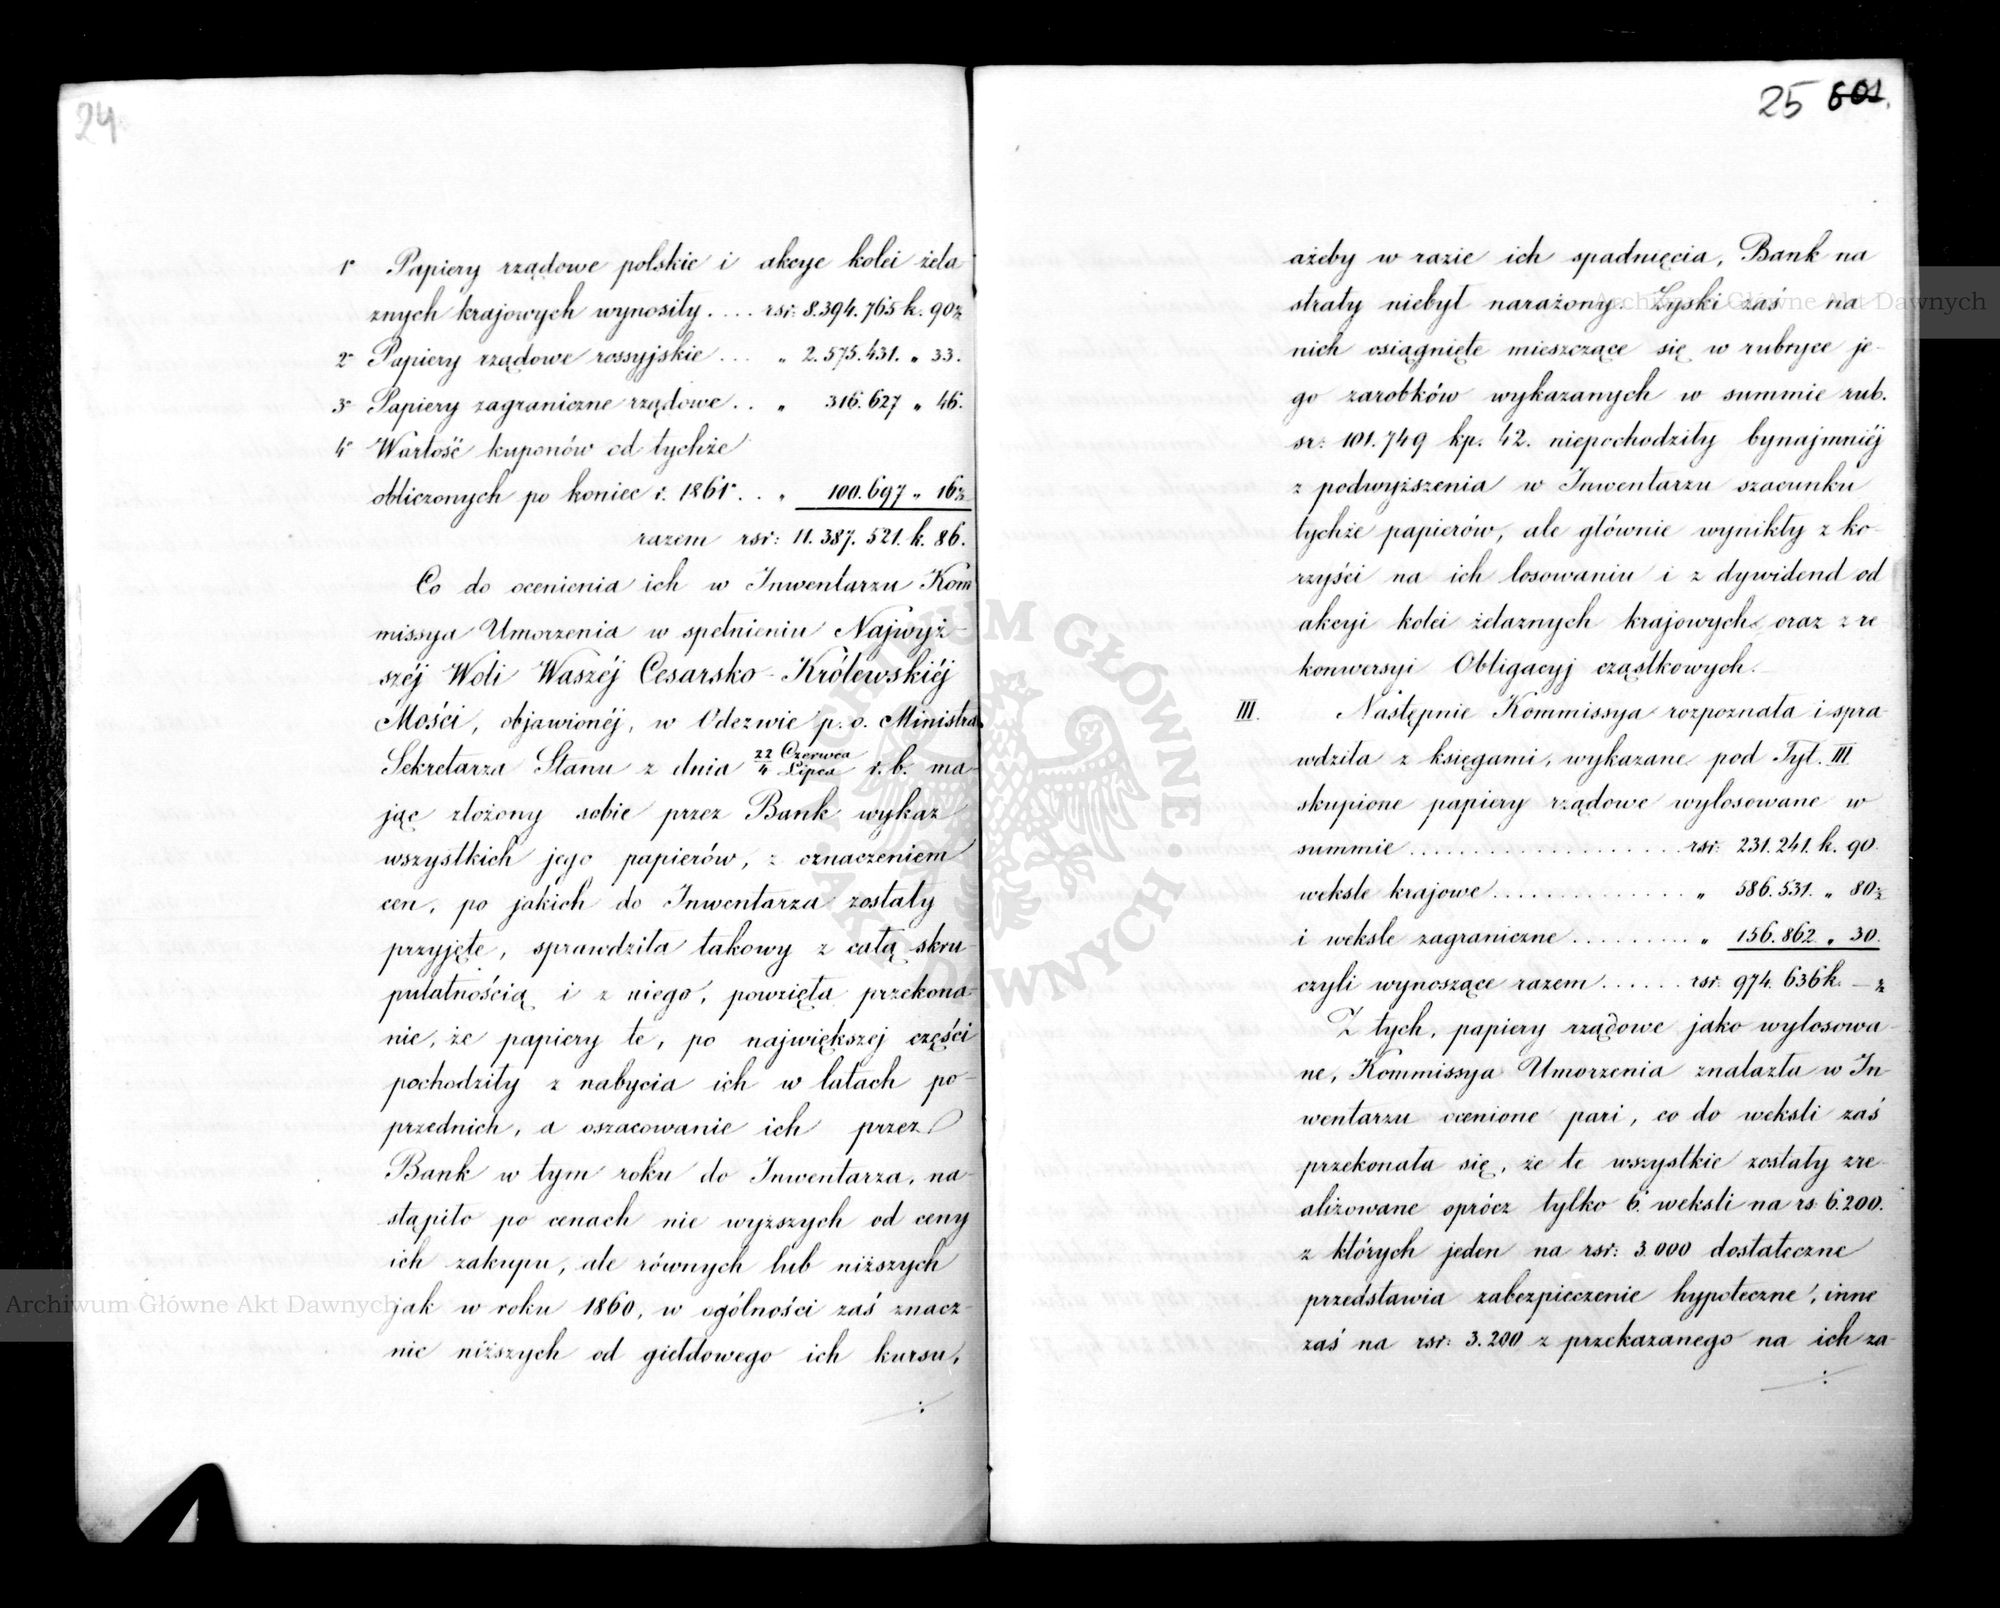 24
1º Papiery rządowe polskie i akcye kolei żela-
znych krajowych wynosiły.... rsr: 8.394.765 k. 90½
2º Papiery rządowe rossyjskie... „ 2.575.431. „ 33.
3º Papiery zagraniczne rządowe.. „ 316.627 „ 46.
4º Wartość kuponów od tychże
obliczonych po koniec r. 1861r.. „ 100.697 „ 16½
razem rsr: 11.387.521. k. 86.
Co do ocenienia ich w Inwentarzu Kom
missya Umorzenia w spełnieniu Najwyż-
széj Woli Waszéj Cesarsko-Królewskiéj
Mości, objawionéj, w Odezwie p. o. Ministra
Sekretarza Stanu z dnia 22 Czerwca / 4 Lipca r. b. ma-
jąc złożony sobie przez Bank wykaz
wszystkich jego papierów, z oznaczeniem
cen, po jakich do Inwentarza zostały
przyjęte, sprawdziła takowy z całą skru
pulatnością i z niego, powzięła przekona-
nie, że papiery te, po największej części
pochodziły z nabycia ich w latach po-
przednich, a oszacowanie ich przez
Bank w tym roku do Inwentarza, na-
stąpiło po cenach nie wyższych od ceny
ich zakupu, ale równych lub niższych
jak w roku 1860, w ogólności zaś znacz-
nie niższych od giełdowego ich kursu,
25 601.
ażeby w razie ich spadnięcia, Bank na
straty niebył narażony. Zyski zaś na
nich osiągnięte mieszczące się w rubryce je-
go zarobków wykazanych w summie rub.
sr: 101.749 kp. 42. niepochodziły bynajmniéj
z podwyższenia w Inwentarzu szacunku
tychże papierów, ale głównie wynikły z ko-
rzyści na ich losowaniu i z dywidend od
akcyi kolei żelaznych krajowych oraz z re
konwersyi Obligacyj cząstkowych.
III. Następnie Kommissya rozpoznała i spra-
wdziła z księgami, wykazane pod Tyt. III
skupione papiery rządowe wylosowane w
summie.................... rsr: 231.241. k. 90.
weksle krajowe............... „ 586.531. „ 80½
i weksle zagraniczne.......... „ 156.862 „ 30.
czyli wynoszące razem...... rsr: 974.636 k. — ½
Z tych, papiery rządowe jako wylosowa-
ne, Kommissya Umorzenia znalazła w In-
wentarzu ocenione pari, co do weksli zaś
przekonała się, że te wszystkie zostały zre-
alizowane oprócz tylko 6. weksli na rs. 6.200.
z których jeden na rsr: 3.000 dostateczne
przedstawia zabezpieczenie hypoteczne, inne
zaś na rsr: 3.200 z przekazanego na ich za-
Archiwum Główne Akt Dawnych
Archiwum Główne Akt Dawnych
ARCHIWUM GŁÓWNE AKT DAWNYCH